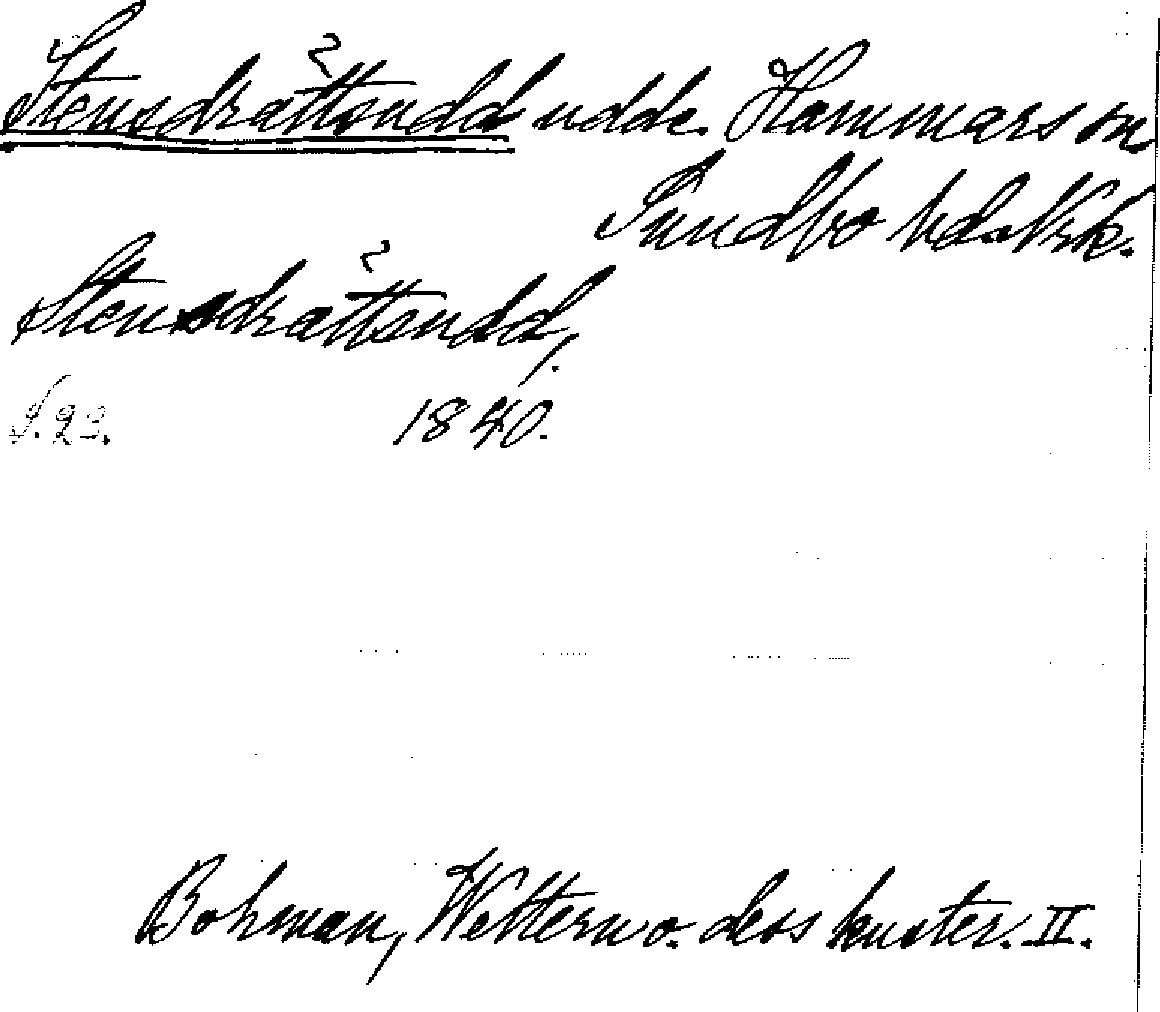 Stensdrättsudd udde. Hammars sn
Sundbo hd. Nrk.
Stensdrättsudd,
S. 23. 1840.
Bohman, Wettern o. dess kuster. II.